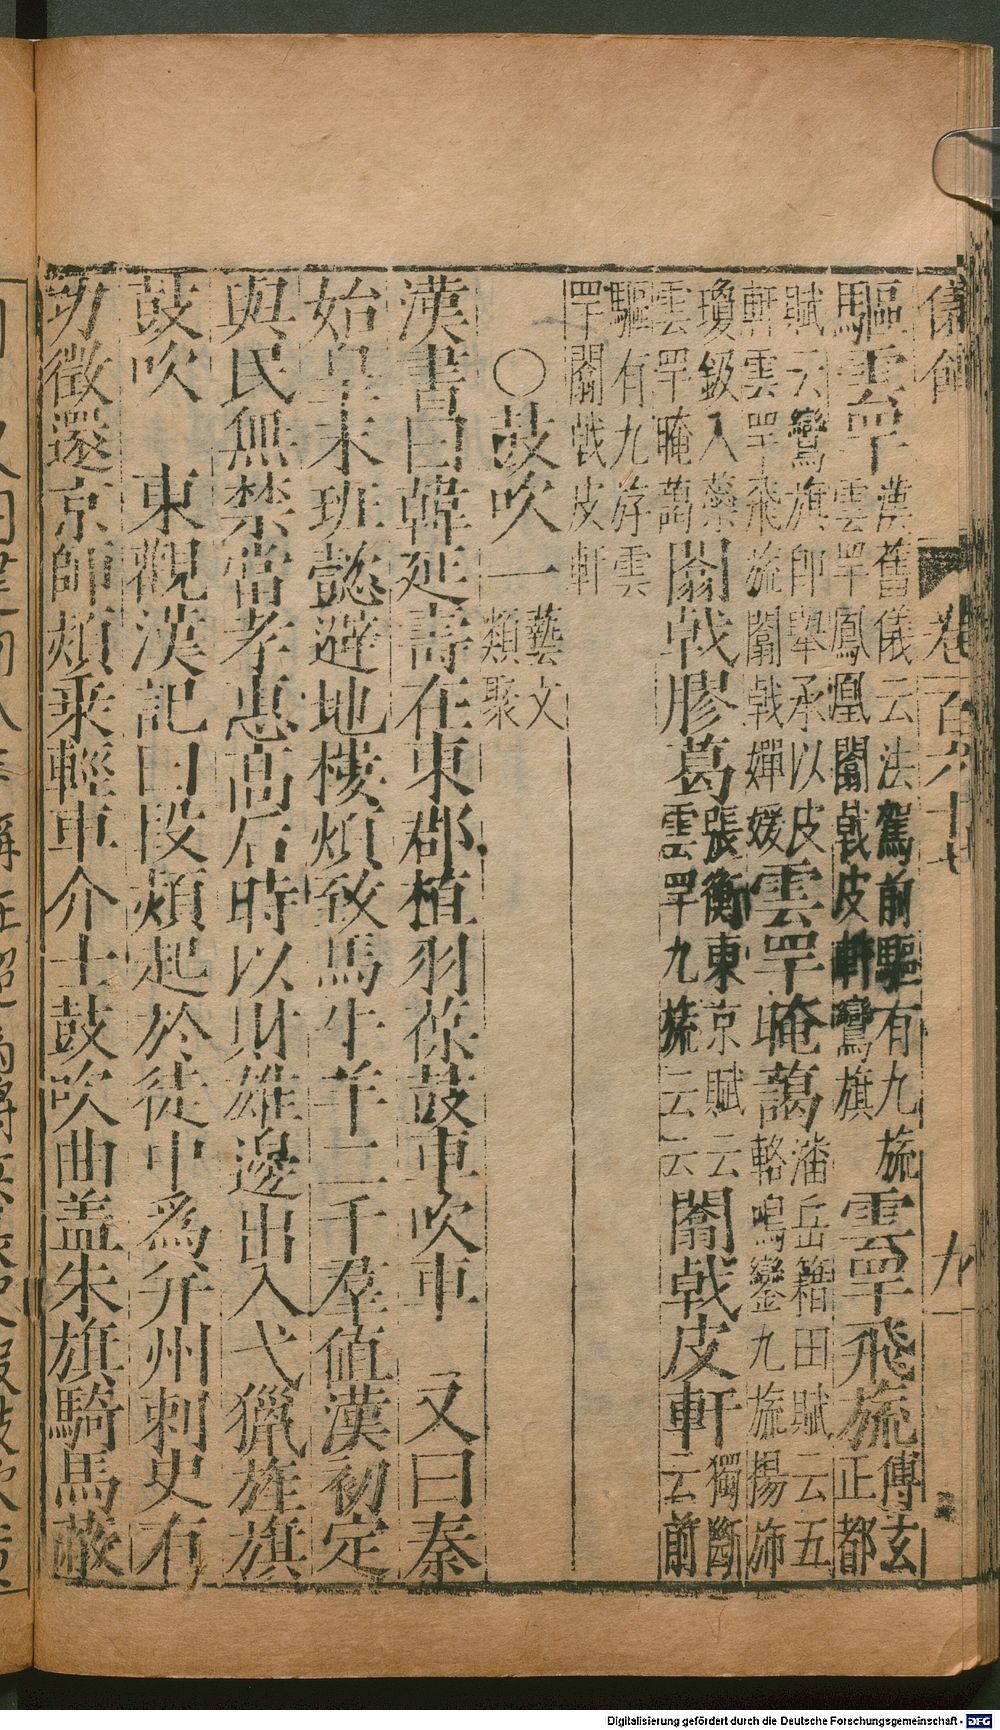 儀飾 卷一百六十七 九
驅雲罕漢舊儀云法駕前驅有九旒雲罕鳳凰闟戟皮軒鸞旗雲罕飛旒傅玄正都
賦云鸞旗卽舉承以皮軒雲罕飛旒闟戟嬋媛雲罕晻藹潘岳籍田賦云五輅鳴鑾九旒揚斾
瓊鈒入蘂雲罕晻藹闟戟膠葛張衡東京賦云雲罕九旒云云闟戟皮軒獨斷云前
驅有九游雲罕闟戟皮軒
○鼓吹一藝文類聚
漢書曰韓延壽在東郡植羽葆鼓車吹車 又曰秦
始皇末班懿避地樓煩致馬牛羊二千羣值漢初定
與民無禁當孝惠高后時以財雄邊出入弋獵旌旗
鼓吹 東觀漢記曰段熲起於徒中爲并州刺史有
功徵還京師熲乘輕車介士鼓吹曲盖朱旗騎馬蔽
Digitalisierung gefördert durch die Deutsche Forschungsgemeinschaft - DFG